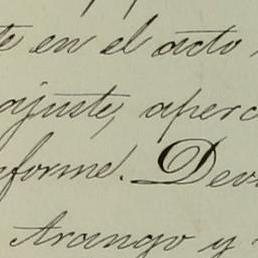 te en el acto
ajuste, aperc
nforme. Dev
Arango y